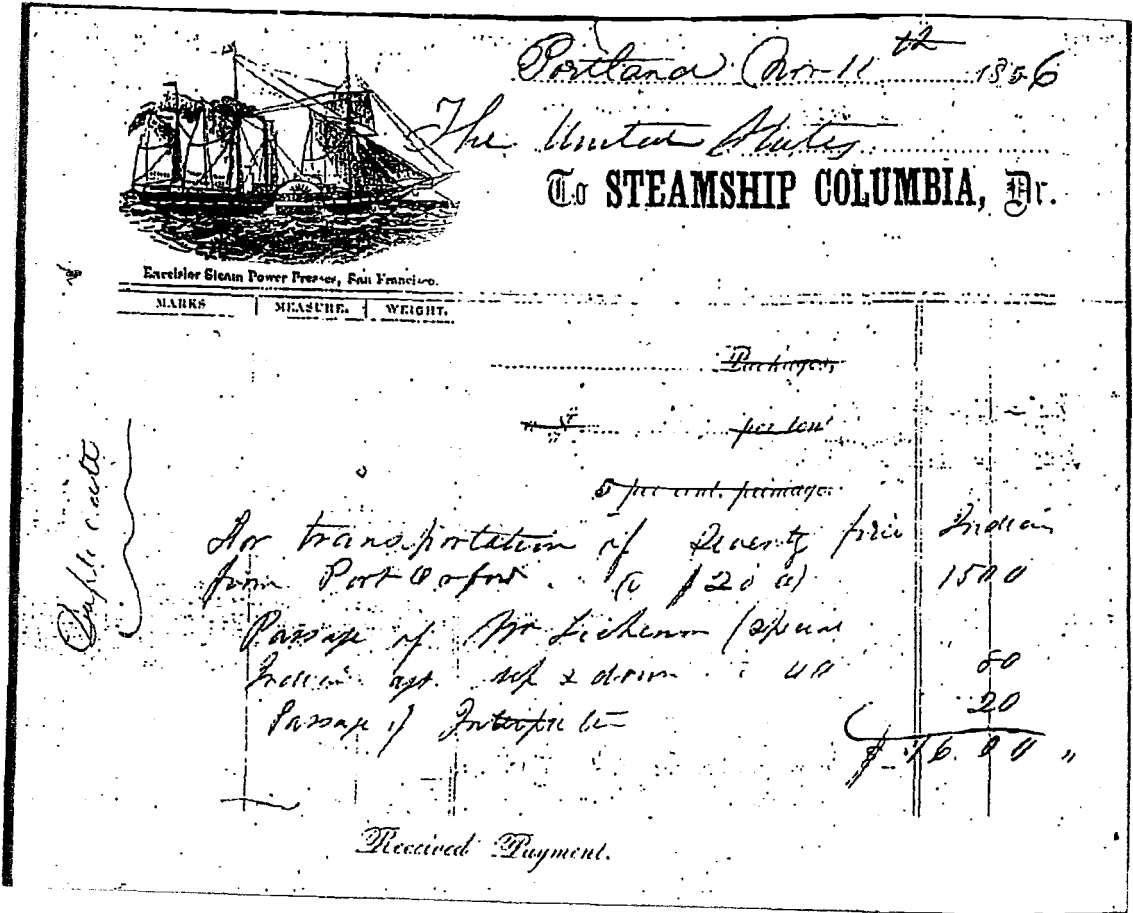 Portland Nov 11th 1856
The United States
To STEAMSHIP COLUMBIA, Dr.
Excelsior Steam Power Presses, San Francisco.
MARKS MEASURE. WEIGHT.
Packages,
per ton
5 per cent. primage.
Duplicate
For transportation of Seventy five Indians
from Port Orford @ $20 1500
Passage of Mr (Special
Indian agt. up & down 40 80
Passage of Interpreter 20
$ 16.00 "
Received Payment.